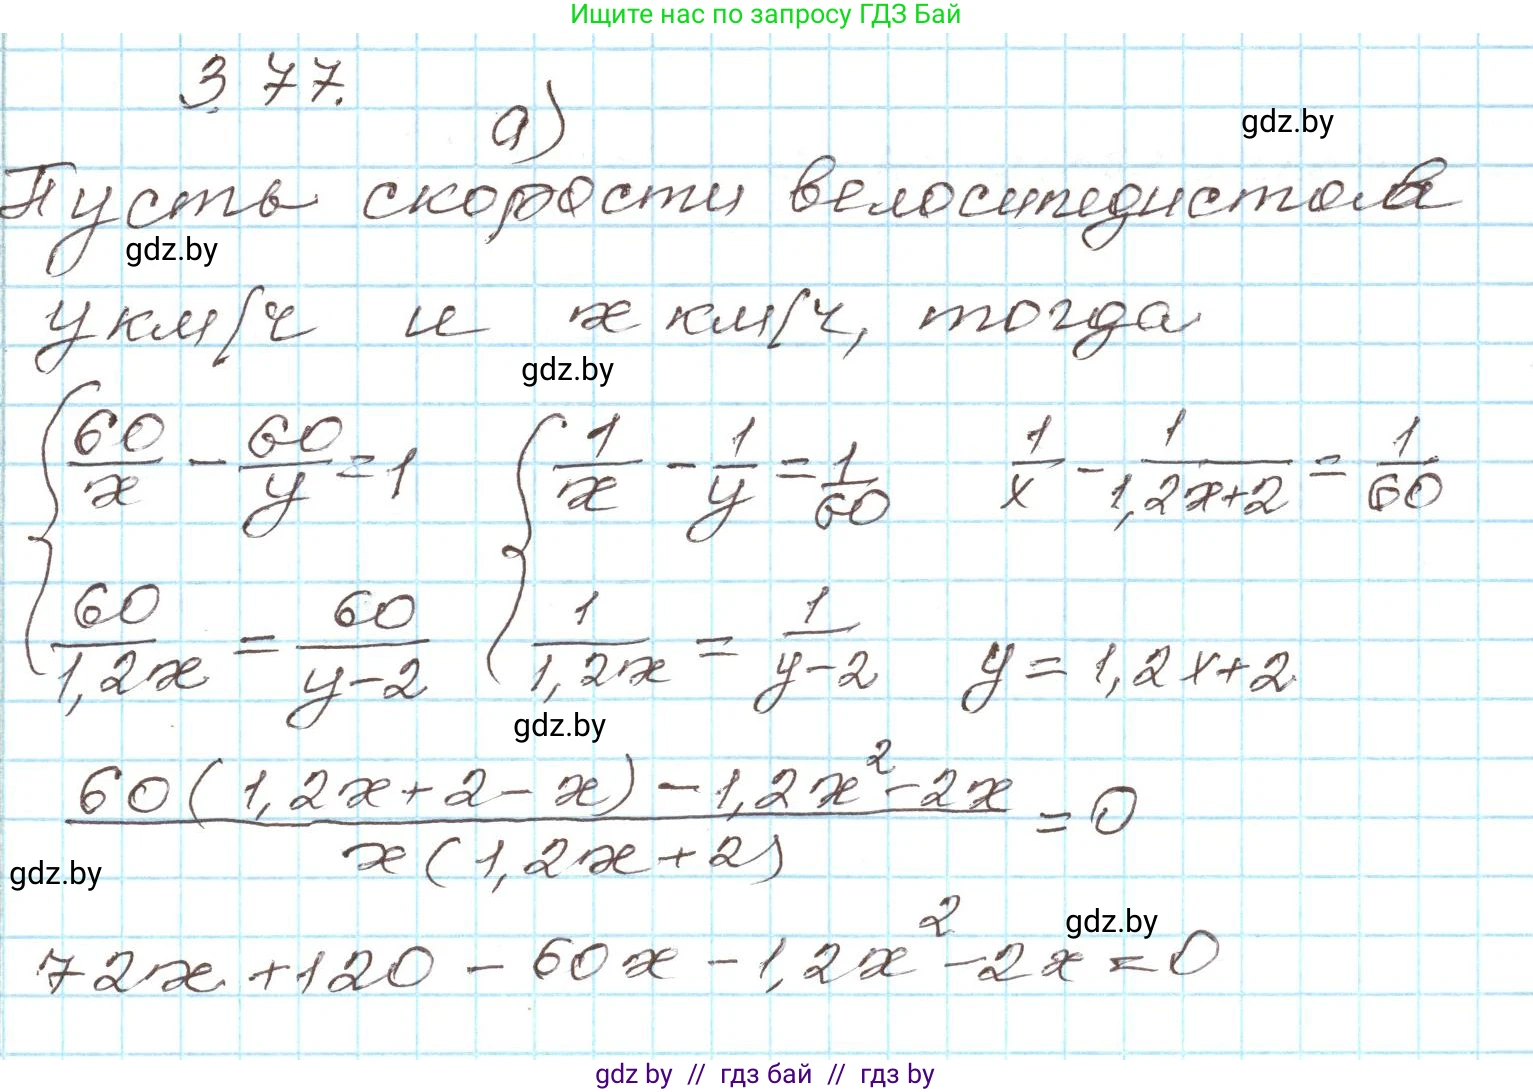 Ищите нас по запросу ГДЗ Бай
3.77.
а)
gdz.by
Пусть скорости велосипедистов
gdz.by
y км/ч и x км/ч, тогда
gdz.by
{ 60/x - 60/y = 1 { 1/x - 1/y = 1/60 1/x - 1/(1,2x+2) = 1/60
60/(1,2x) = 60/(y-2) 1/(1,2x) = 1/(y-2) y = 1,2x+2
gdz.by
(60(1,2x+2-x)-1,2x²-2x)/(x(1,2x+2)) = 0
gdz.by
gdz.by
72x+120-60x-1,2x²-2x=0
gdz.by // гдз бай // гдз by